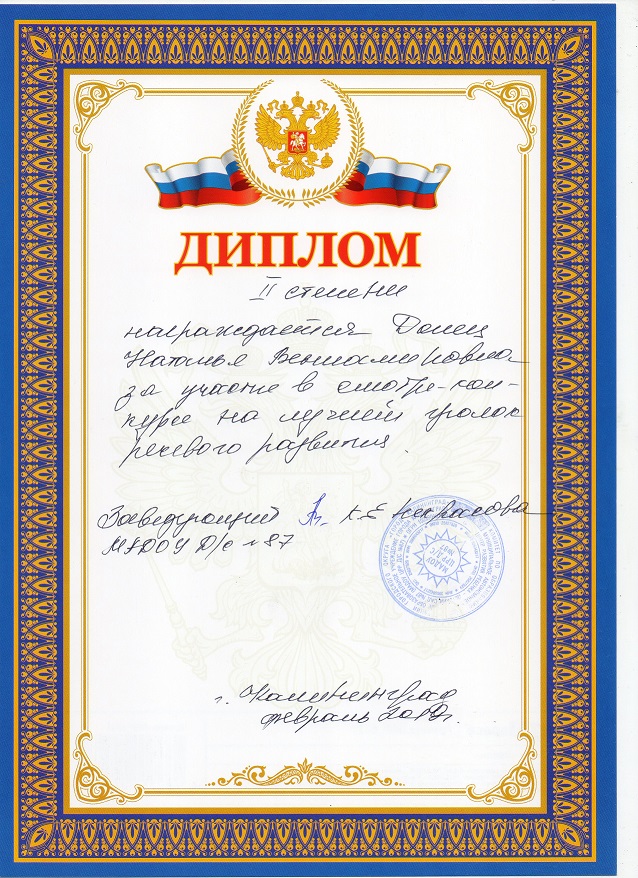 ДИПЛОМ
II степени
награждается Донец
Наталья Вениаминовна
за участие в смотре-кон-
курсе на лучший уголок
речевого развития.
Заведующий К.Е Некрасова
МАДОУ д/с №87
г. Калининград
февраль 2019г.